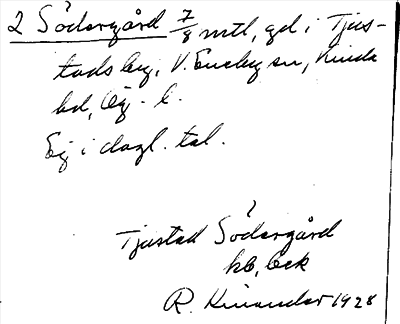 2 Södergård 7/8 mtl, gd i Tjus-
tads by, V. Eneby sn, Kinda
hd, Ög. l.
Ej i dagl. tal.
Tjustad Södergård
kb, Eck
R. Kinander 1928